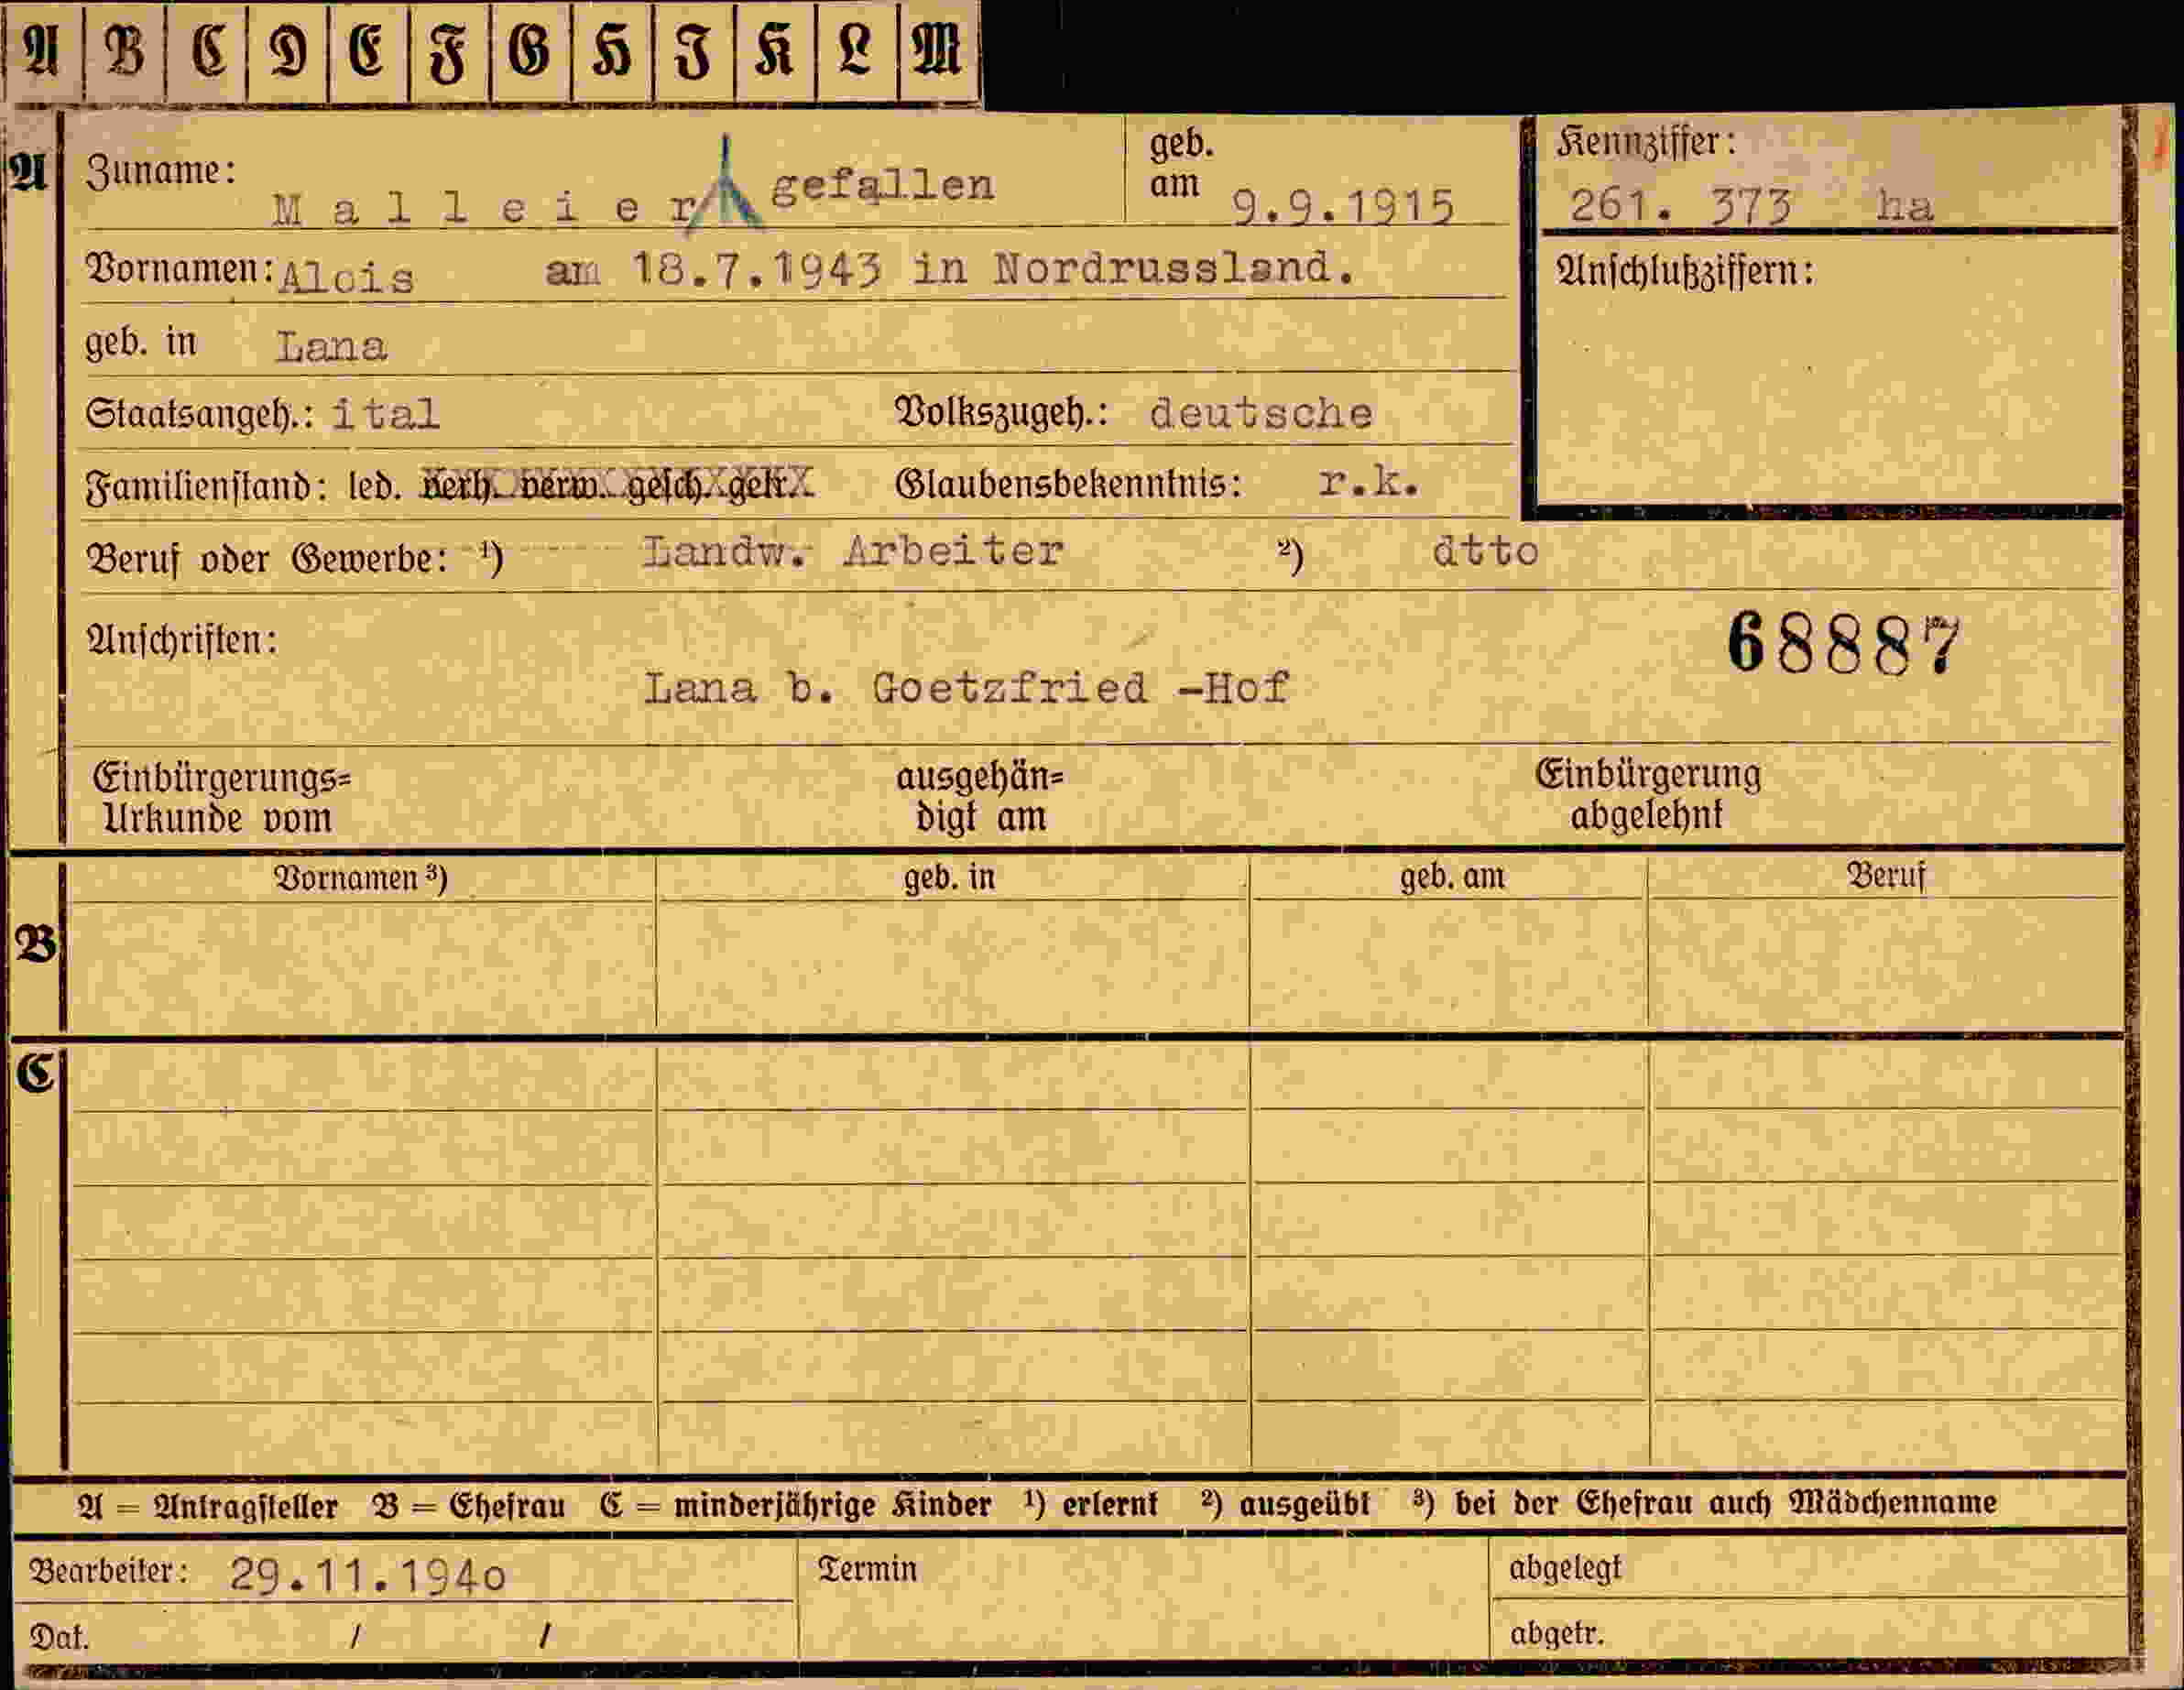 A B C D E F G H I K L M
A
Zuname: Malleier gefallen
geb. am 9.9.1915
Kennziffer:
261. 373 ha
Vornamen: Alois am 18.7.1943 in Nordrussland.
Anschlußziffern:
geb. in Lana
Staatsangeh.: ital Volkszugeh.: deutsche
Familienstand: led. verh. verw. gesch. getr. Glaubensbekenntnis: r.k.
Beruf oder Gewerbe: ¹) Landw. Arbeiter ²) dtto
Anschriften:
68887
Lana b. Goetzfried -Hof
Einbürgerungs= ausgehän= Einbürgerung
Urkunde vom digt am abgelehnt
B
Vornamen ³) geb. in geb. am Beruf
C
A = Antragsteller B = Ehefrau C = minderjährige Kinder ¹) erlernt ²) ausgeübt ³) bei der Ehefrau auch Mädchenname
Bearbeiter: 29.11.194o Termin abgelegt
Dat. / / abgetr.